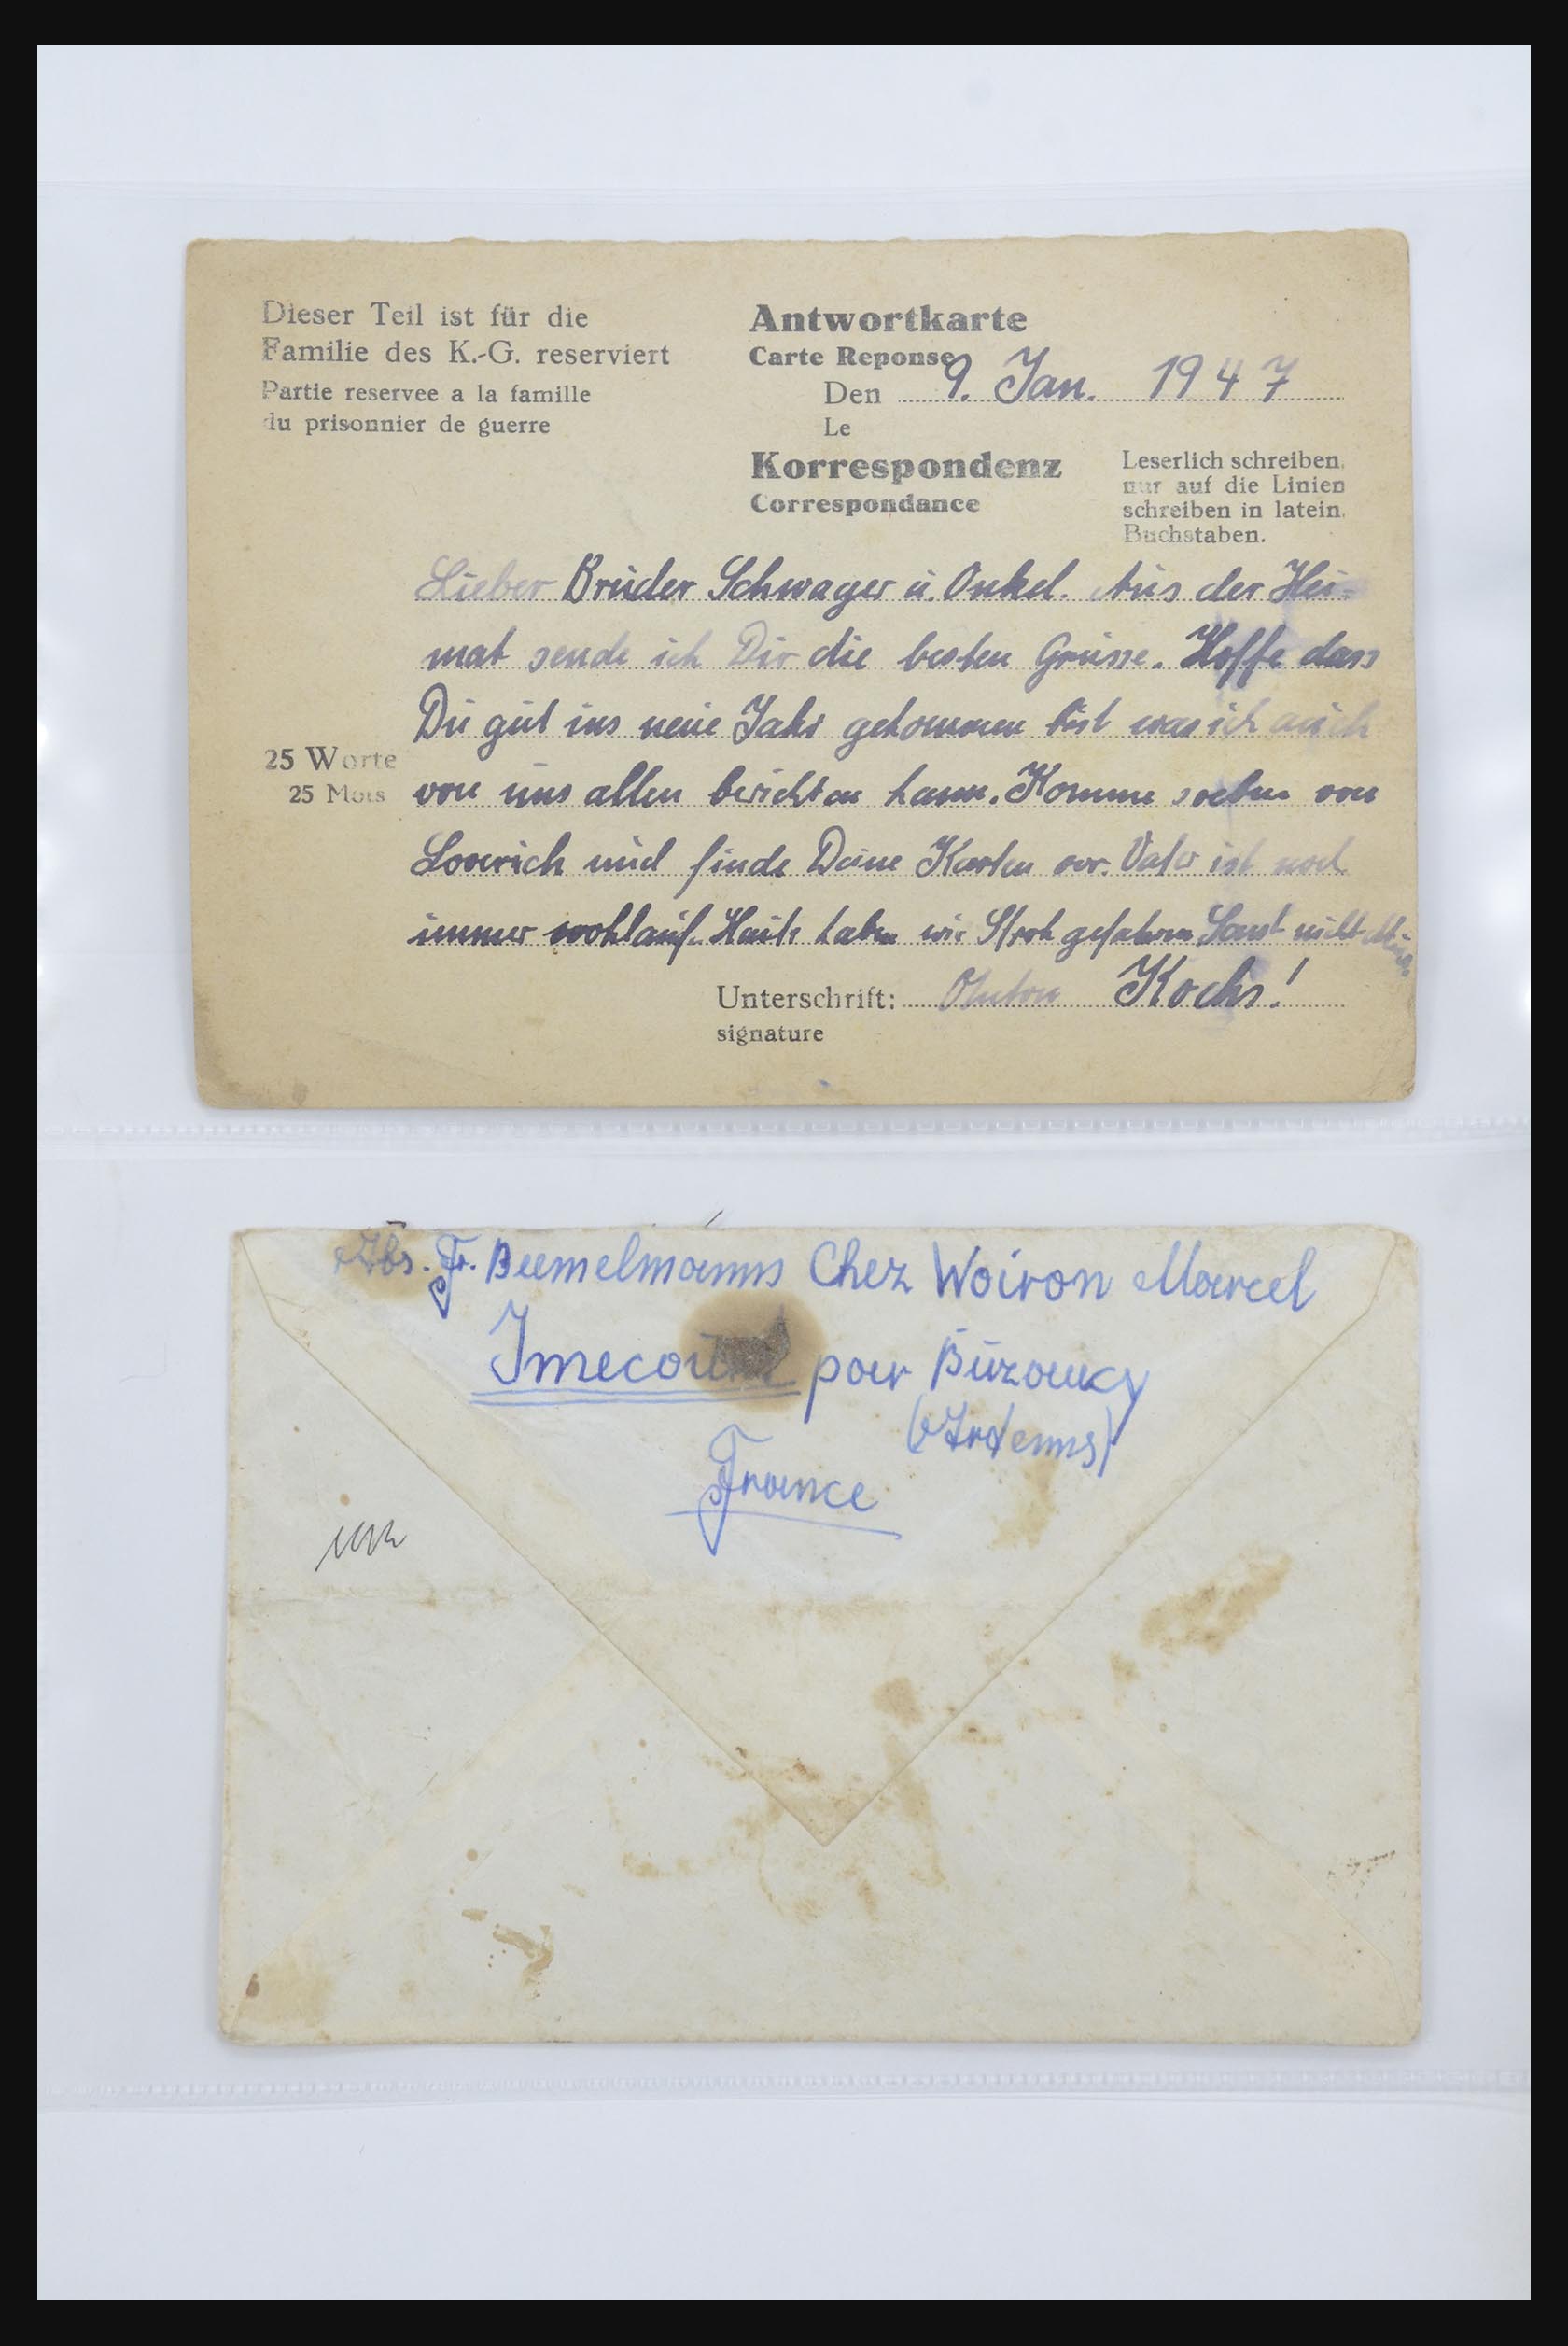 Dieser Teil ist für die
Familie des K.-G. reserviert
Partie reservee a la famille
du prisonnier de guerre
Antwortkarte
Carte Reponse
Den 9. Jan. 1947
Le
Korrespondenz
Correspondance
Leserlich schreiben,
nur auf die Linien
schreiben in latein.
Buchstaben.
25 Worte
25 Mots
Lieber Bruder Schwager u. Onkel. Aus der Hei-
mat sende ich Dir die besten Grüsse. Hoffe dass
Du gut ins neue Jahr gekommen bist was ich auch
von uns allen berichten kann. Komme soeben von
Loverich und finde Deine Karten vor. Vater ist noch
immer wohlauf. Haute haben wir Stroh gefahren Sonst nicht
Unterschrift: Anton Kochs!
signature
Abs. Fr. Beemelmanns Chez Woiron Marcel
par Buzancy
(Ardenns)
France